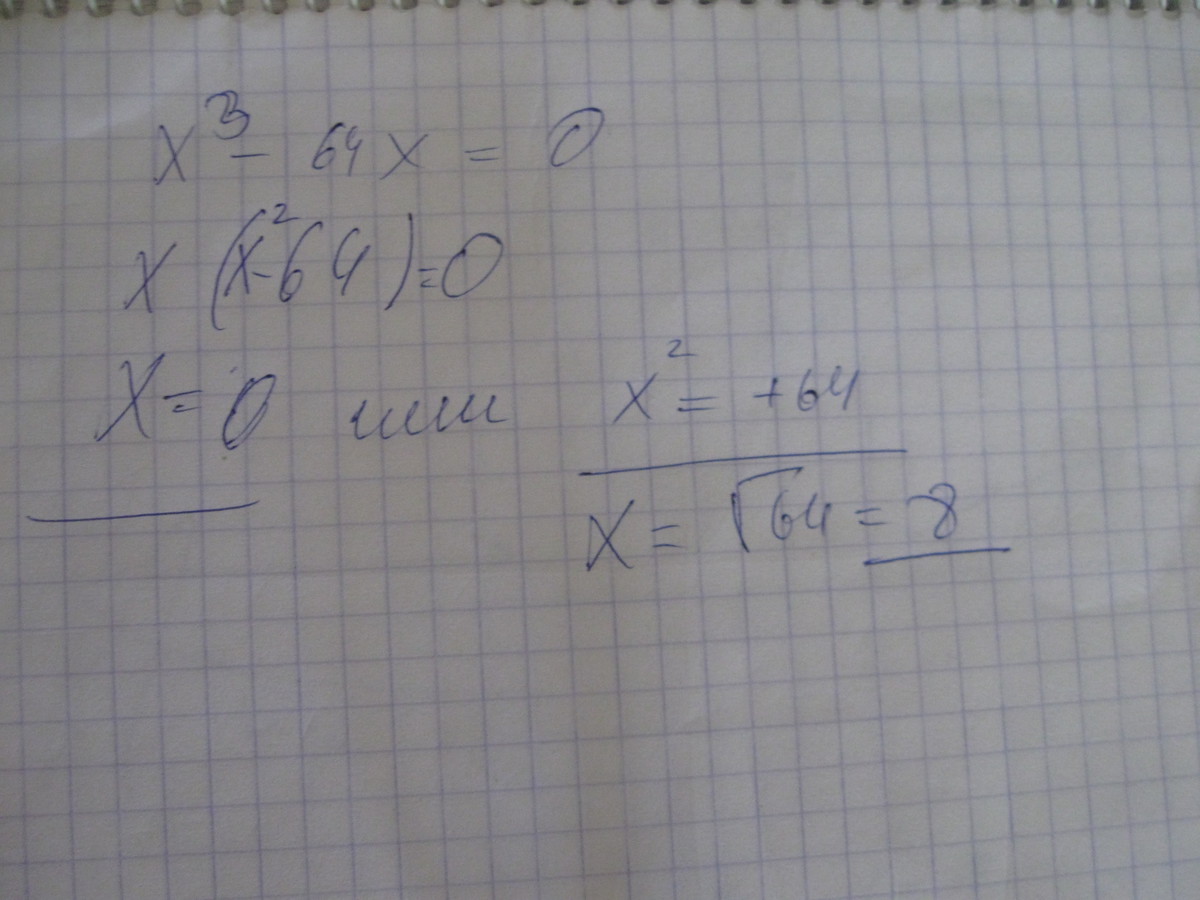 x³ - 64x = 0
x (x²-64)=0
x = 0 или x² = +64
x = √64 = 8